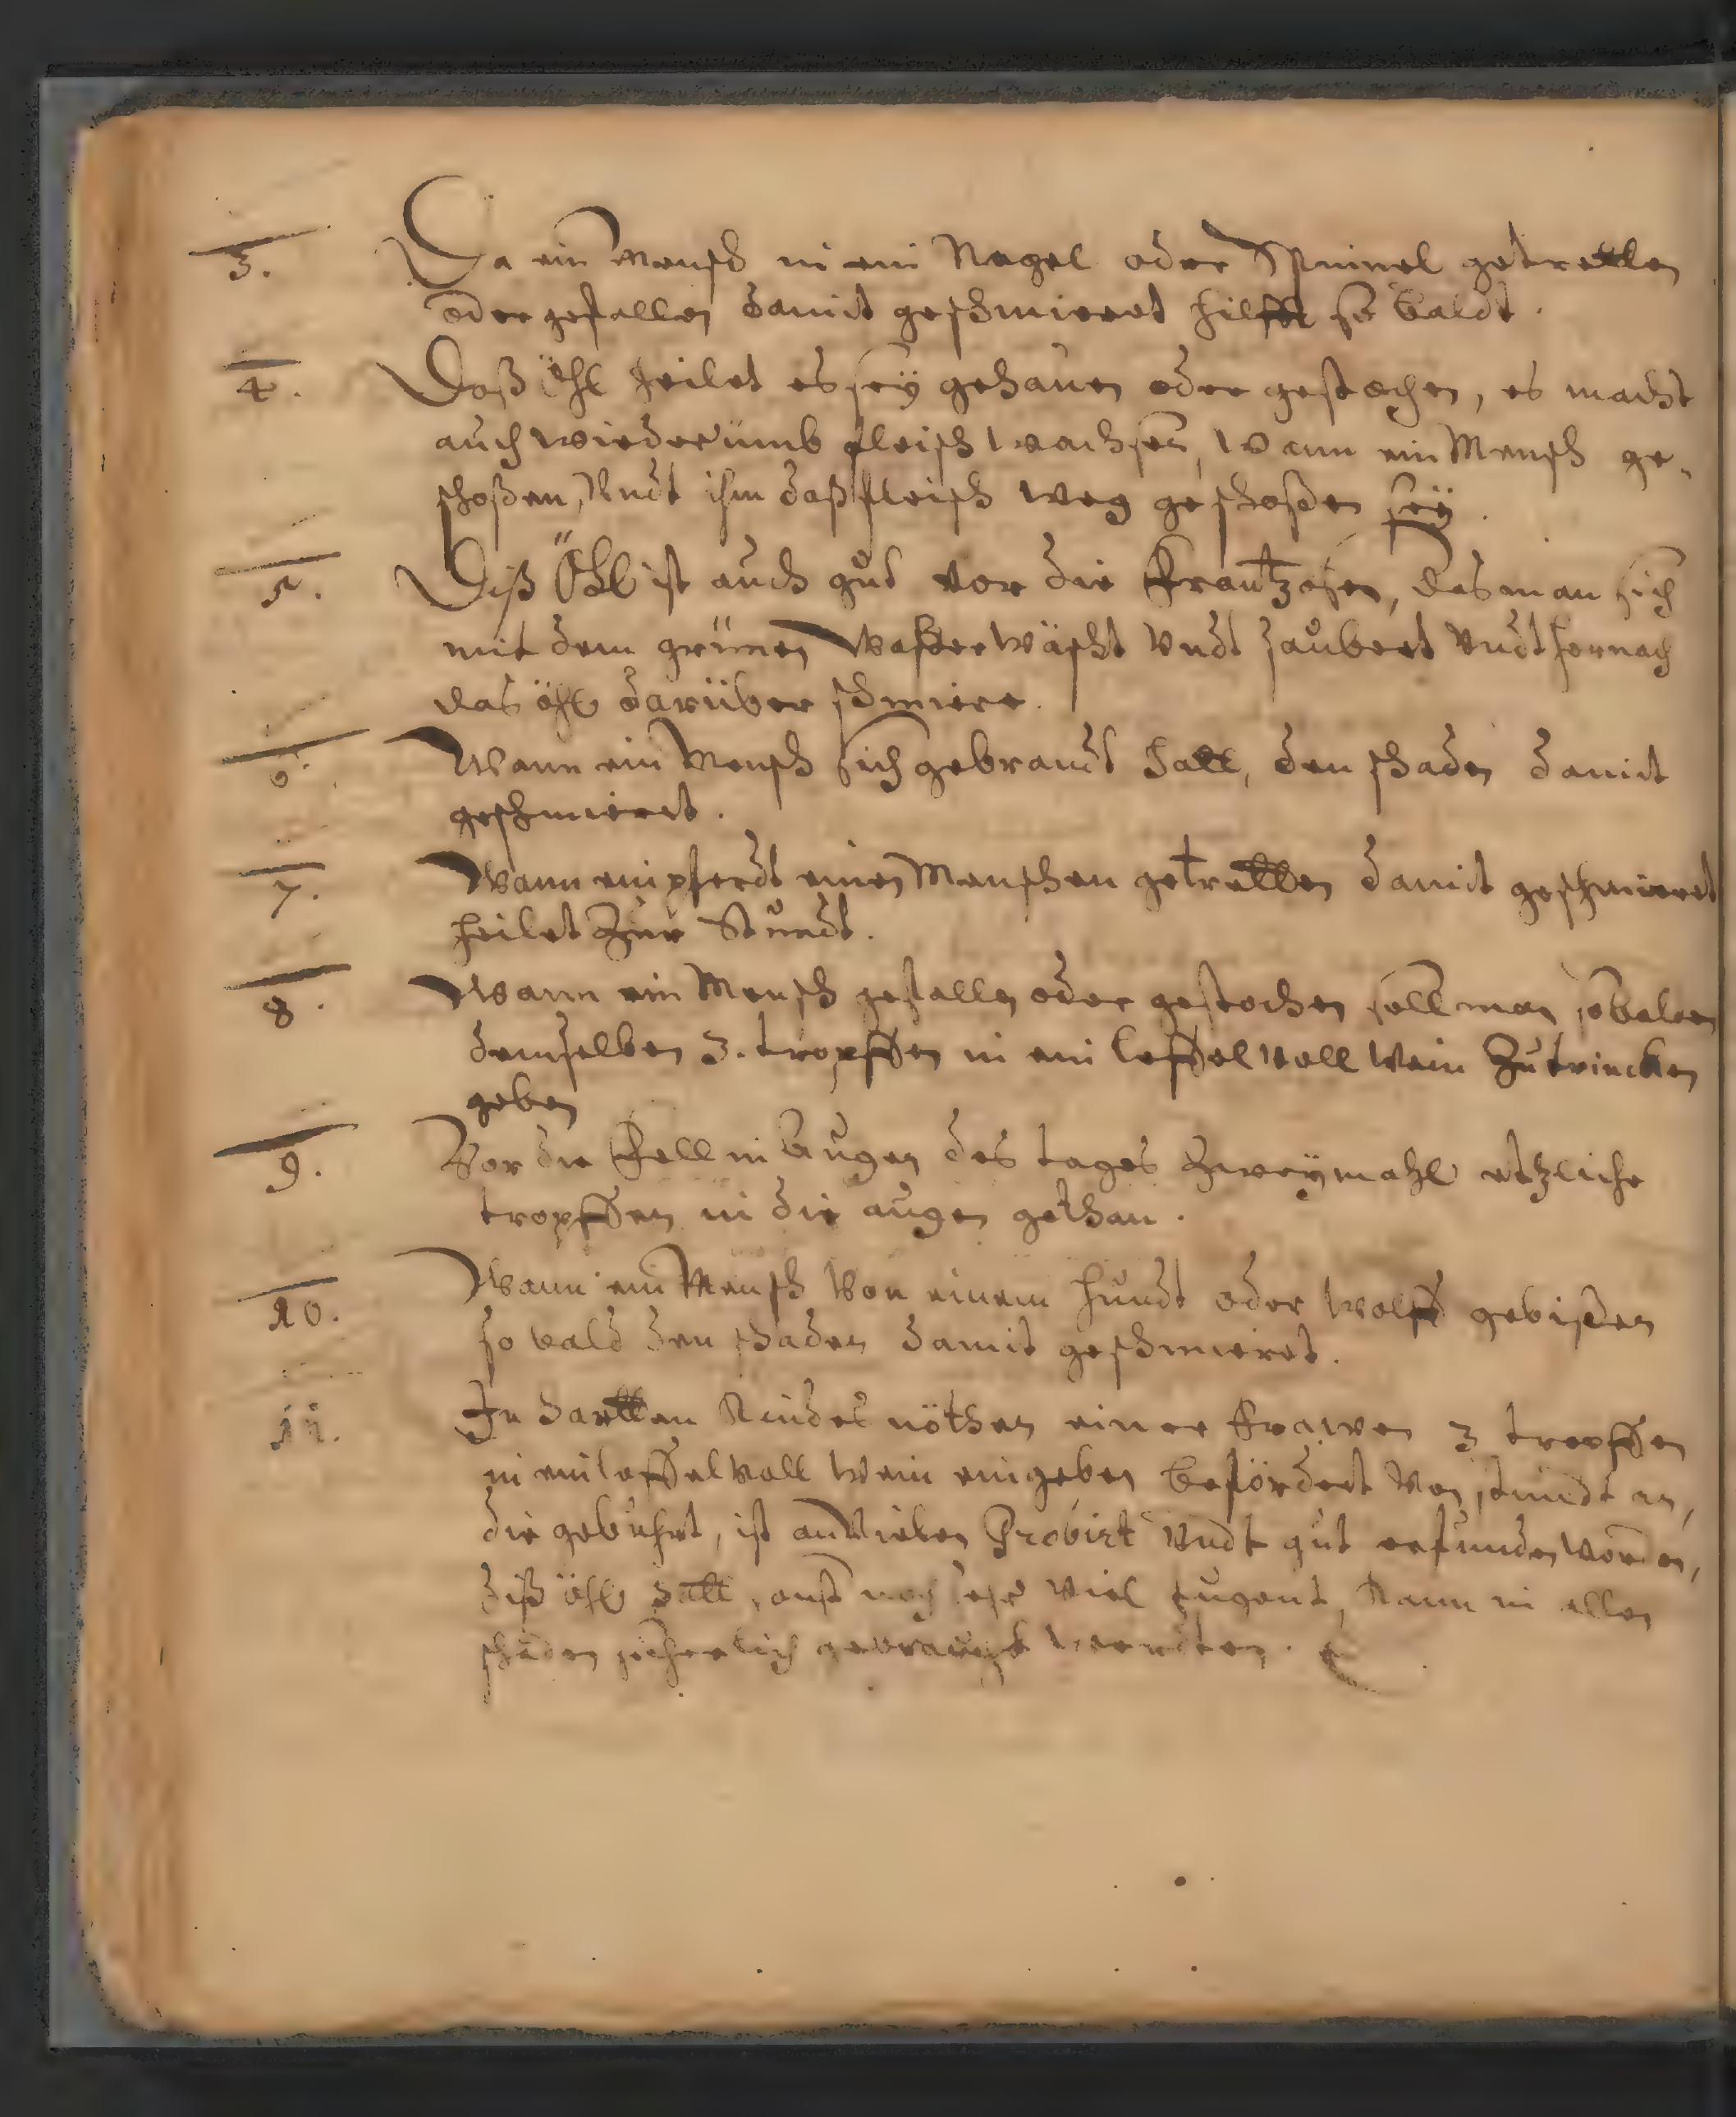 3. Da ein Mensch in ein Nagel oder Spinnel getretten
oder gefallen damit geschmieret hilfft so baldt.
4. Daß öhl heilet es sey gehauen oder gestochen, es macht
auch wiederümb fleisch wachsen, wann ein Mensch ge-
schoßen, Undt ihm daß fleisch weg geschoßen seÿ.
5. Diß Öhl ist auch gut vor die Frantzosen, das man sich
mit dem grünen Waßer wäscht Undt saubert Undt hernach
das öhl darüber schmiere.
6. Wann ein Mensch sich gebrandt hatt, den schaden damit
geschmieret.
7. Wann ein pferdt einen Menschen getretten damit geschmieret
heilet Zur Stundt.
8. Wann ein Mensch gefallen oder gestochen soll man sobalden
demselben 3. tropffen in ein leffel voll Wein Zu trincken
geben
9. Vor die Fell in Augen des tages Zweÿmahl etzliche
tropffen in die augen gethan.
10. Wann ein Mensch Von einem hundt oder Wolff gebißen
so bald den schaden damit geschmieret.
11. In hartten Kindes nöthen einer frawen 3 tropffen
in ein leffel Voll Wein eingeben befördert Von stundt an,
die gebuhrt, ist an Vielen Probirt Undt gut erfunden worden,
diß öhl hatt sonst noch sehr Viel tugent, Kann in allen
schäden sicherlich gebraucht werdten.